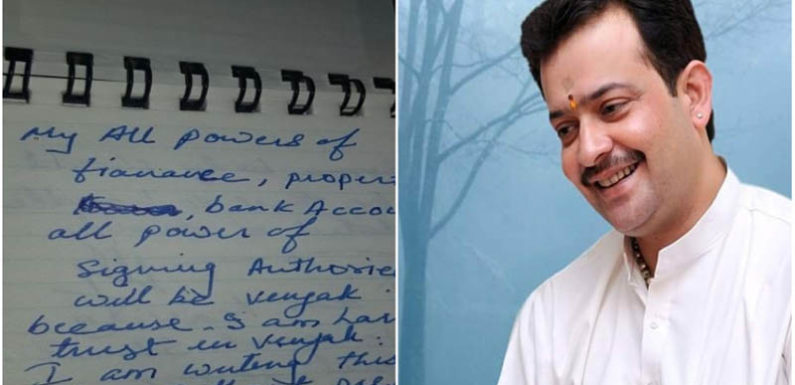 My All powers of
fianance, proper
, bank Accou
all power of
Signing Authorie
will be venyak
because. I am har
trust in venyak.
I am writing this